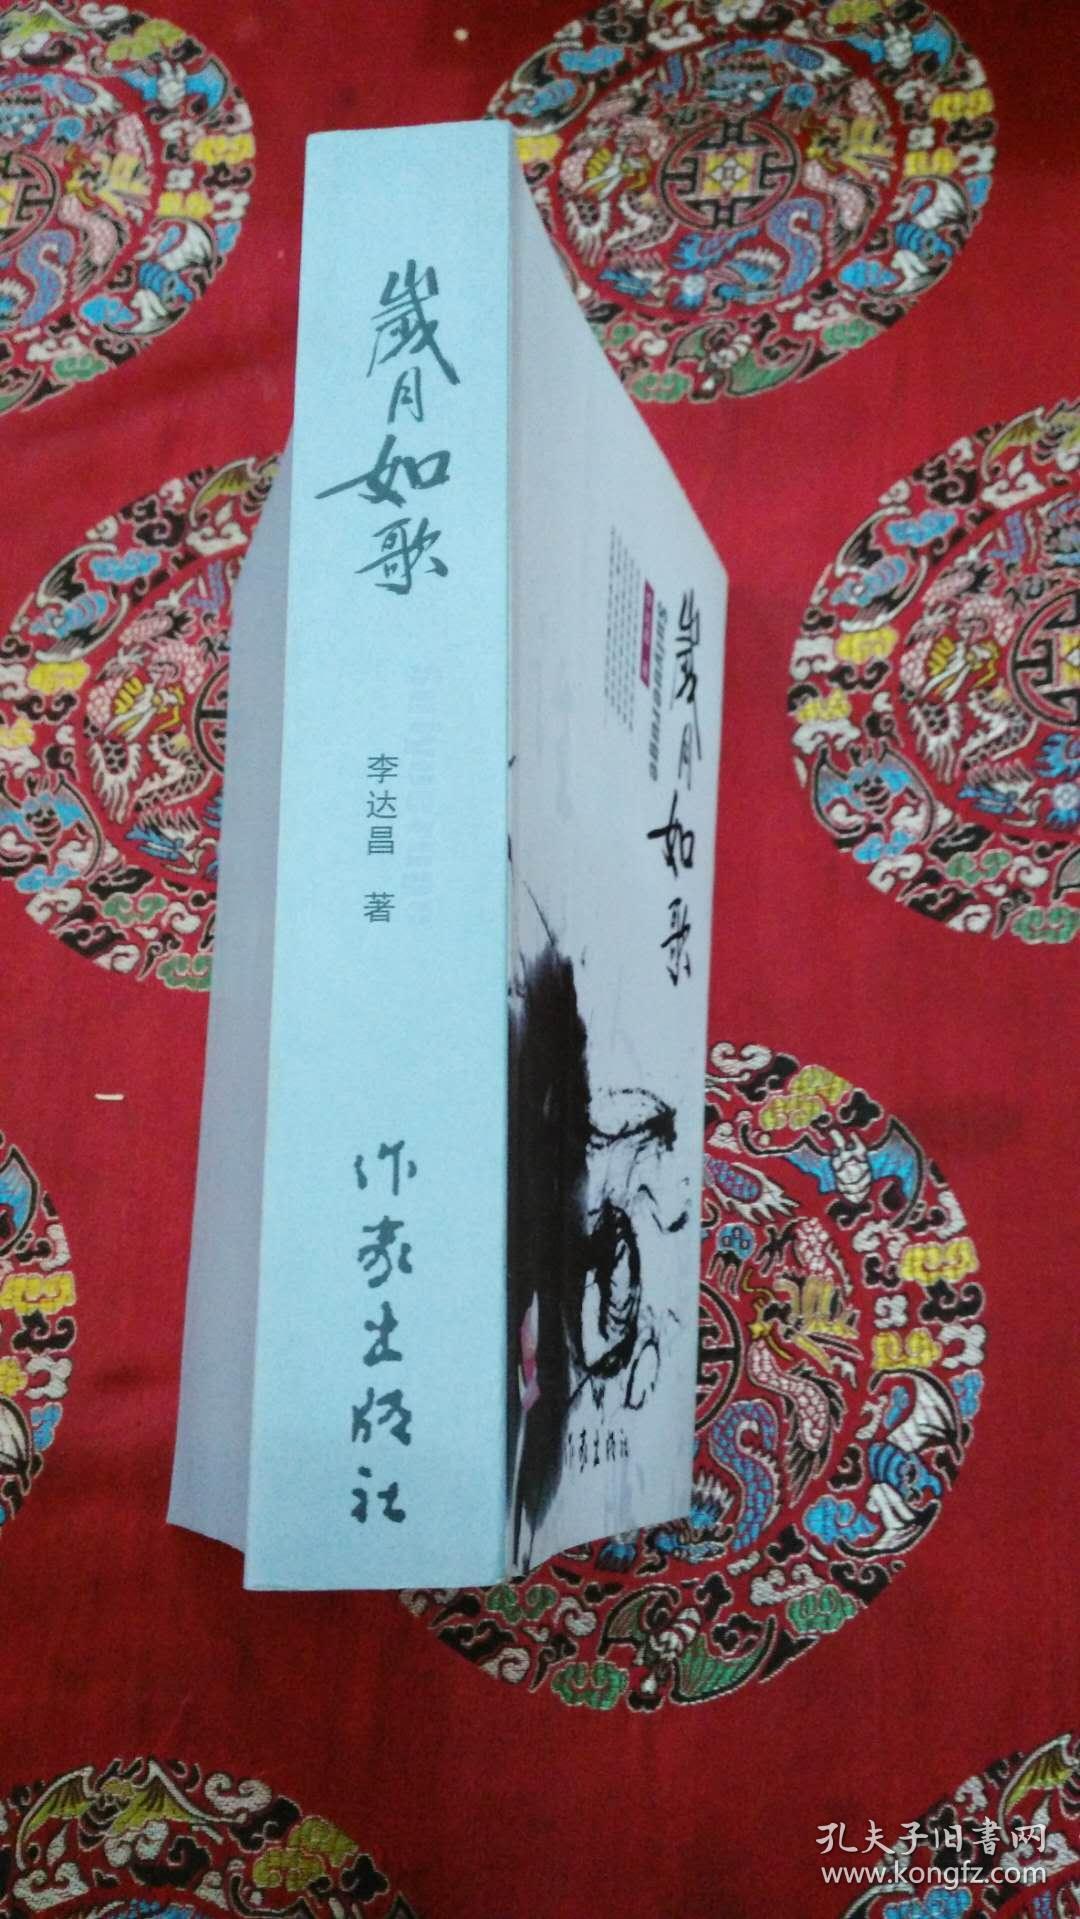 歲月如歌
李达昌 著
作家出版社
歲月如歌
Suiyueruge
作家出版社
孔夫子旧書网
www.kongfz.com